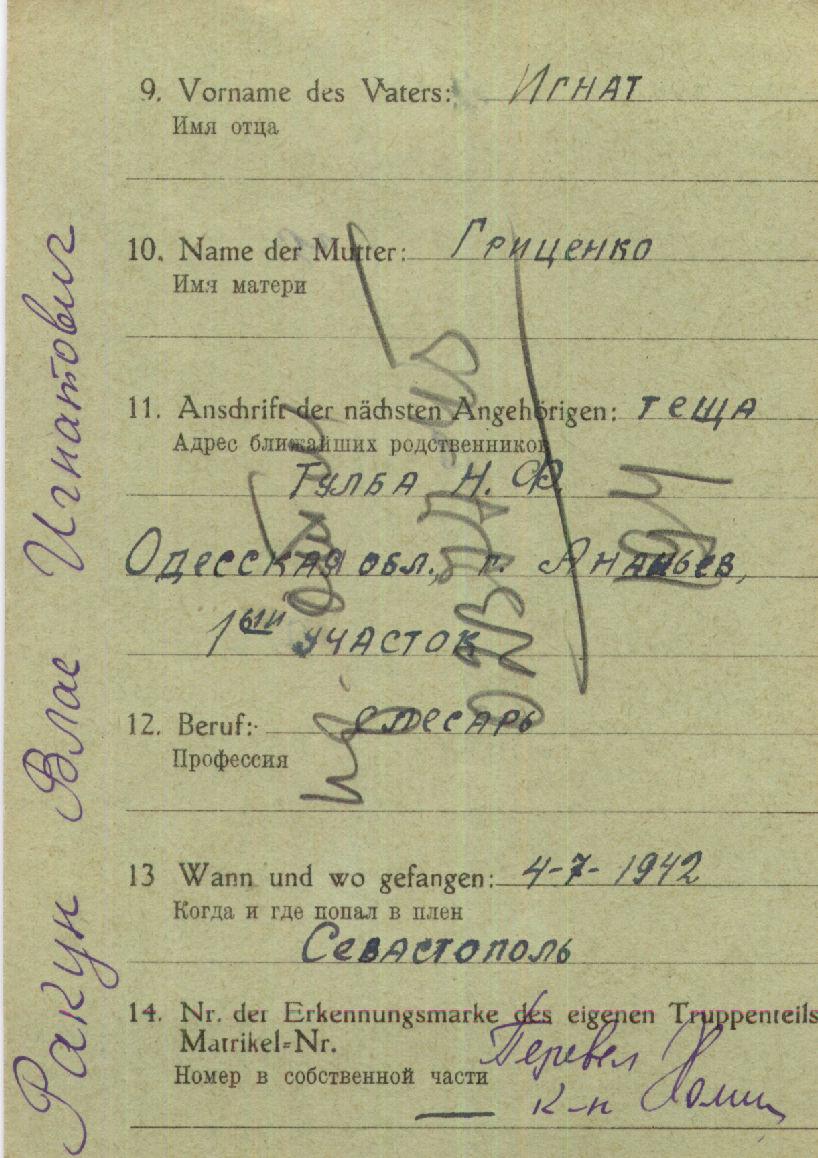 9. Vorname des Vaters: Игнат
Имя отца
10. Name der Mutter: Гриценко
Имя матери
11. Anschrift der nächsten Angehörigen: теща
Адрес ближайших родственников
Гулба Н. Ф.
Одесская обл., г. Ананьев,
1ый участок
12. Beruf: слесарь
Профессия
13 Wann und wo gefangen: 4-7-1942
Когда и где попал в плен
Севастополь
14. Nr. der Erkennungsmarke des eigenen Truppenteils
Matrikel-Nr.
Номер в собственной части
Перевел
к-н
Ракун Влас Игнатович